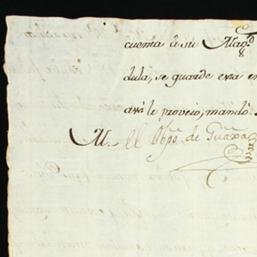 cuenta à su Mag.d
dula, se guarde esta en
asi lo proveio, mandò
M. El Obpō. de Guaxa